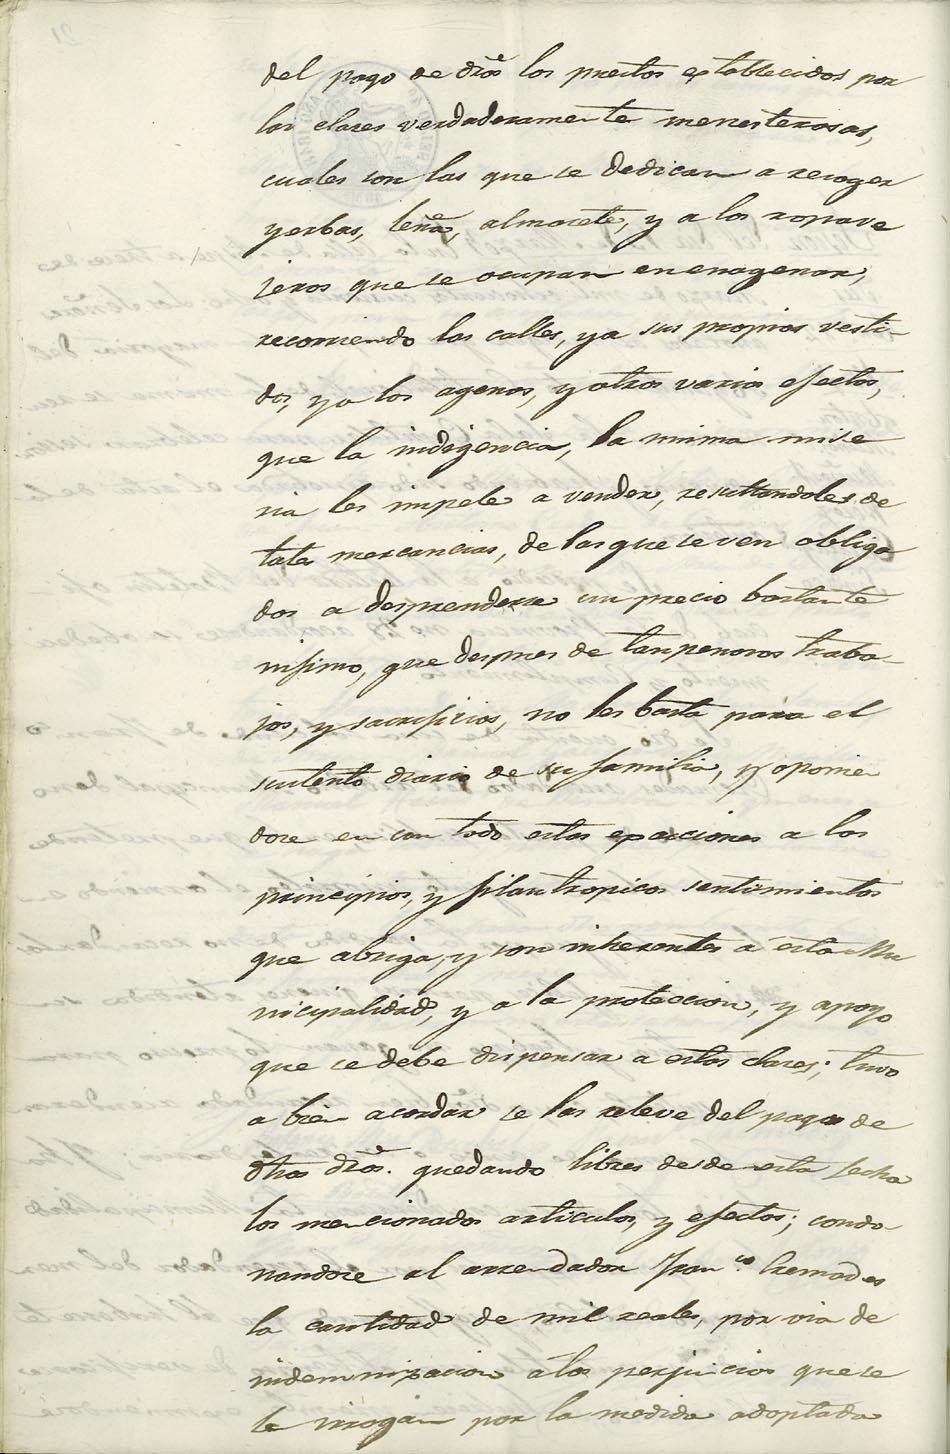 del pago de dros los puestos establecidos por
las clases verdaderamente menesterosas,
cuales son las que se dedican a recoger
yerbas, leña, almarete, y a los ropave
jeros que se ocupan en enagenar,
recorriendo las calles, ya sus propios vesti-
dos, ya los agenos, y otros varios efectos,
que la indigencia, la misma mise
ria les impele a vender, resultandoles de
tales mercancias, de las que se ven obliga
dos a desprenderse un precio bastante
nisimo, que despues de tan penosos traba-
jos, y sacrificios, no les basta para el
sustento diario de su familia, y oponien
dose en un todo estas exacciones a los
principios, y filantropicos sentimientos
que abriga, y son inherentes a esta Mu
nicipalidad, y a la proteccion, y apoyo
que se debe dispensar a estas clases; tuvo
a bien acordar se las releve del pago de
dhos dros. quedando libres desde esta fecha
los mencionados articulos, y efectos; condo-
nandose al arrendador Franco. Cremades
la cantidad de mil reales, por via de
indemnizacion a los perjuicios que se
le irrogan por la medida adoptada